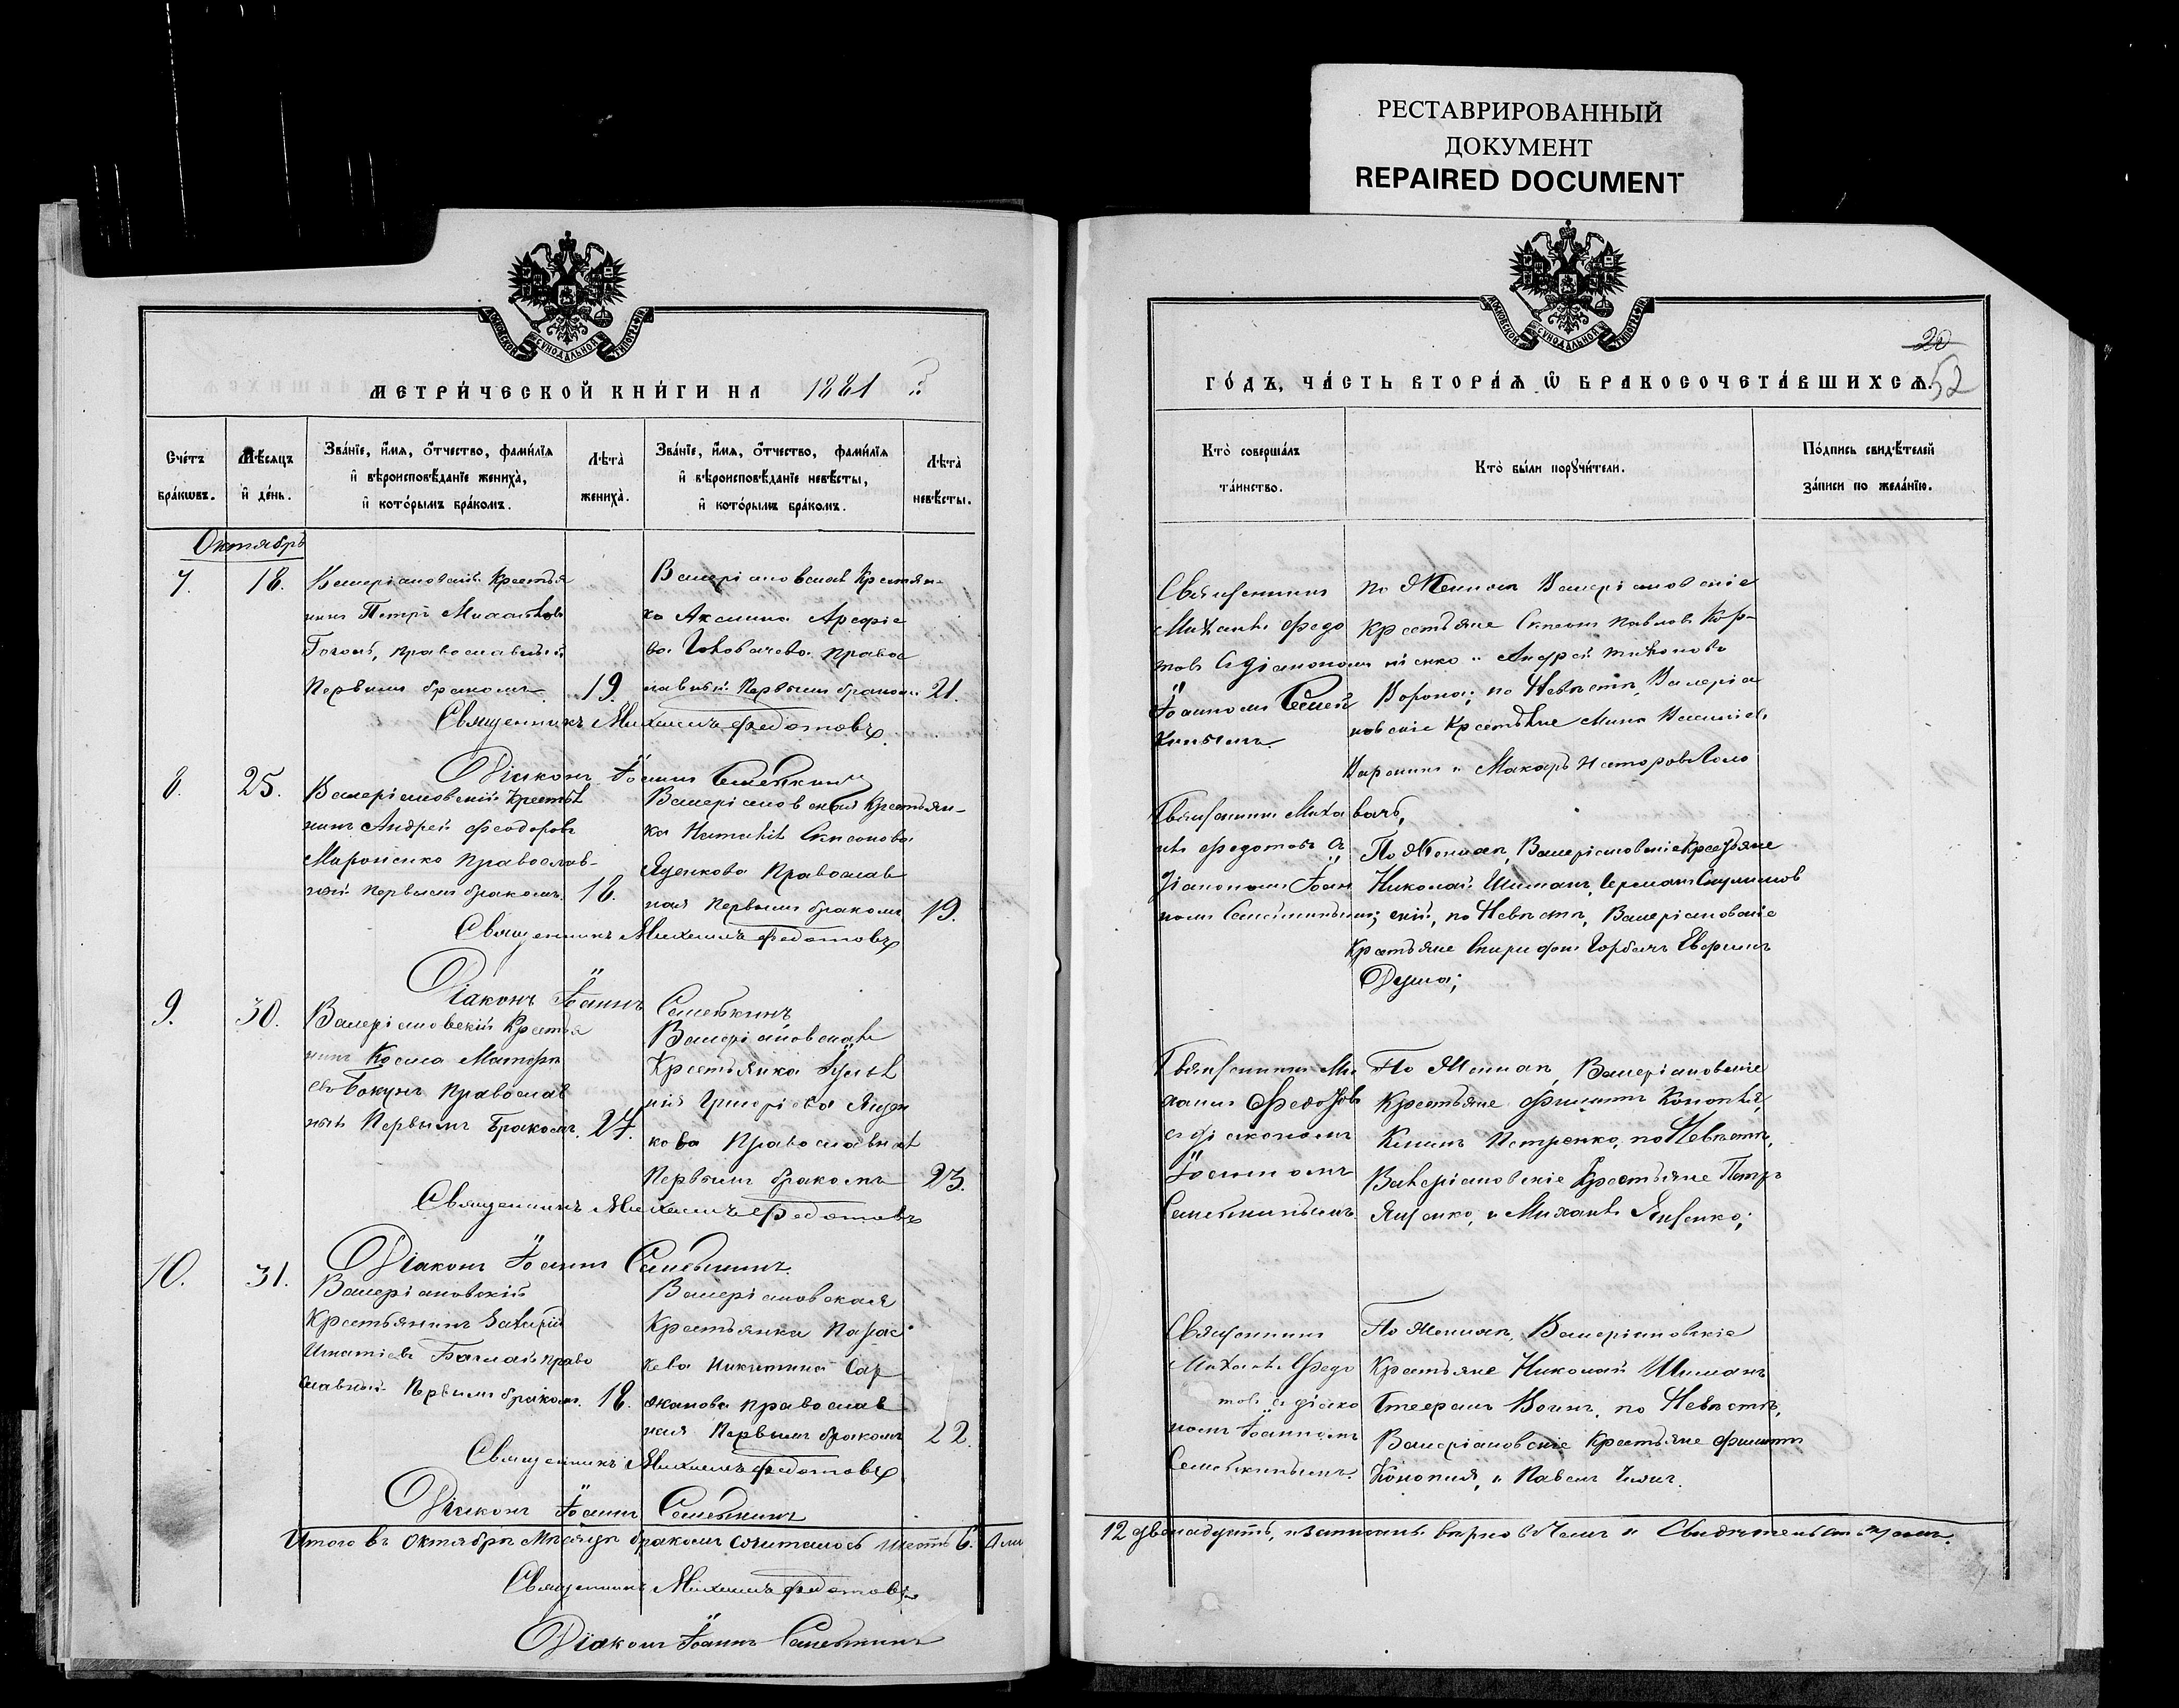 РЕСТАВРИРОВАННЫЙ
ДОКУМЕНТ
REPAIRED DOCUMENT
МОСКОВСКОЙ СѴНОДАЛЬНОЙ ТИПОГРАФІИ
МЕТРИ́ЧЕСКОЙ КНИ́ГИ НА 1881
Сче́тъ бра́кѡвъ.
Мѣ́сяцъ и҆ де́нь.
Зва́нїе, и҆́мя, ѻ҆́тчество, фами́лїя
и҆ вѣроисповѣ́данїе жениха̀,
и҆ кото́рымъ бра́комъ.
Лѣта̀ жениха̀.
Зва́нїе, и҆́мя, ѻ҆́тчество, фами́лїя
и҆ вѣроисповѣ́данїе невѣ́сты,
и҆ кото́рымъ бра́комъ.
Лѣта̀ невѣ́сты.
Октябрь
7.
18.
Валеріановскій Крестья
нинъ Петръ
православный
Первымъ бракомъ 19.
Валеріановская Крестьян-
ка Аксинья Арефіе
ва правос
лавный Первымъ бракомъ 21.
Священникъ Михаилъ Федотовъ
Діаконъ Іоаннъ Семейкинъ
8.
25.
Валеріановскій Крестья
нинъ Андрей Феодоровъ
Мироненко Православ-
ный Первымъ бракомъ. 18.
Валеріановская Крестьян-
ка Наталія
Яценкова Православ
ная Первымъ бракомъ 19.
Священникъ Михаилъ Федотовъ
Діаконъ Іоаннъ Семейкинъ
9.
30.
Валеріановскій Крестья
нинъ Косма Матфѣ
евъ Бокунъ Православ
ный Первымъ Бракомъ. 27.
Валеріановская
Крестьянка Іуліа
нія Григоріева Яцен
кова Православная
Первымъ бракомъ 23.
Священникъ Михаилъ Федотовъ
Діаконъ Іоаннъ Семейкинъ
10.
31.
Валеріановскій
Крестьянинъ Захарій
Игнатіевъ право
славный Первымъ бракомъ. 18.
Валеріановская
Крестьянка Парас
кева Никитина Сар
жанова православ
ная Первымъ бракомъ 22.
Священникъ Михаилъ Федотовъ
Діаконъ Іоаннъ Семейкинъ
Итого въ Октябрѣ Мѣсяцѣ бракомъ сочиталось шесть 6.
Священникъ Михаилъ Федотовъ
Діаконъ Іоаннъ Семейкинъ
МОСКОВСКОЙ СѴНОДАЛЬНОЙ ТИПОГРАФІИ
20
52
ГО́ДЪ, ЧА́СТЬ ВТОРА́Я Ѽ БРАКОСОЧЕТА́ВШИХСЯ.
Кто̀ соверша́лъ
та́инство.
Кто̀ бы́ли порꙋчи́тели.
По́дпись свидѣ́телей
за́писи по жела́нїю.
Священникъ
Михаилъ Федо
товъ съ діакономъ
Іоанномъ Семей
кинымъ.
по Женихѣ Валеріановскіе
Крестьяне Павловъ Кор-
ніенко и Андрей Тихоновъ
Ворона; по Невѣстѣ, Валеріа
новскіе Крестьяне Мина
и Макаръ Несторовъ Голо
вачъ,
Священникъ Михаи
лъ Федотовъ съ
діакономъ Іоан
номъ Семейкинымъ;
По Женихѣ, Валеріановскіе Крестьяне
Николай Шиманъ, Германъ
скій, по Невѣстѣ, Валеріановскіе
Крестьяне Спиридонъ Горбачъ
Дума;
Священникъ Ми
хаилъ Федотовъ
съ діакономъ
Іоанномъ
Семейкинымъ.
По Женихѣ, Валеріановскіе
Крестьяне Филиппъ Конопля,
Климъ Петренко, по Невѣстѣ,
Валеріановскіе Крестьяне Петръ
Яценко, и Михаилъ Яценко;
Священникъ
Михаилъ Федо
товъ съ діако
номъ Іоанномъ
Семейкинымъ.
По Женихѣ, Валеріановскіе
Крестьяне Николай Шиманъ
Стефанъ по Невѣстѣ,
Валеріановскіе Крестьяне Филиппъ
Конопля, и Павелъ
12 двѣнадцать, записанъ вѣрно въ чемъ и Свидѣтельствуемъ.